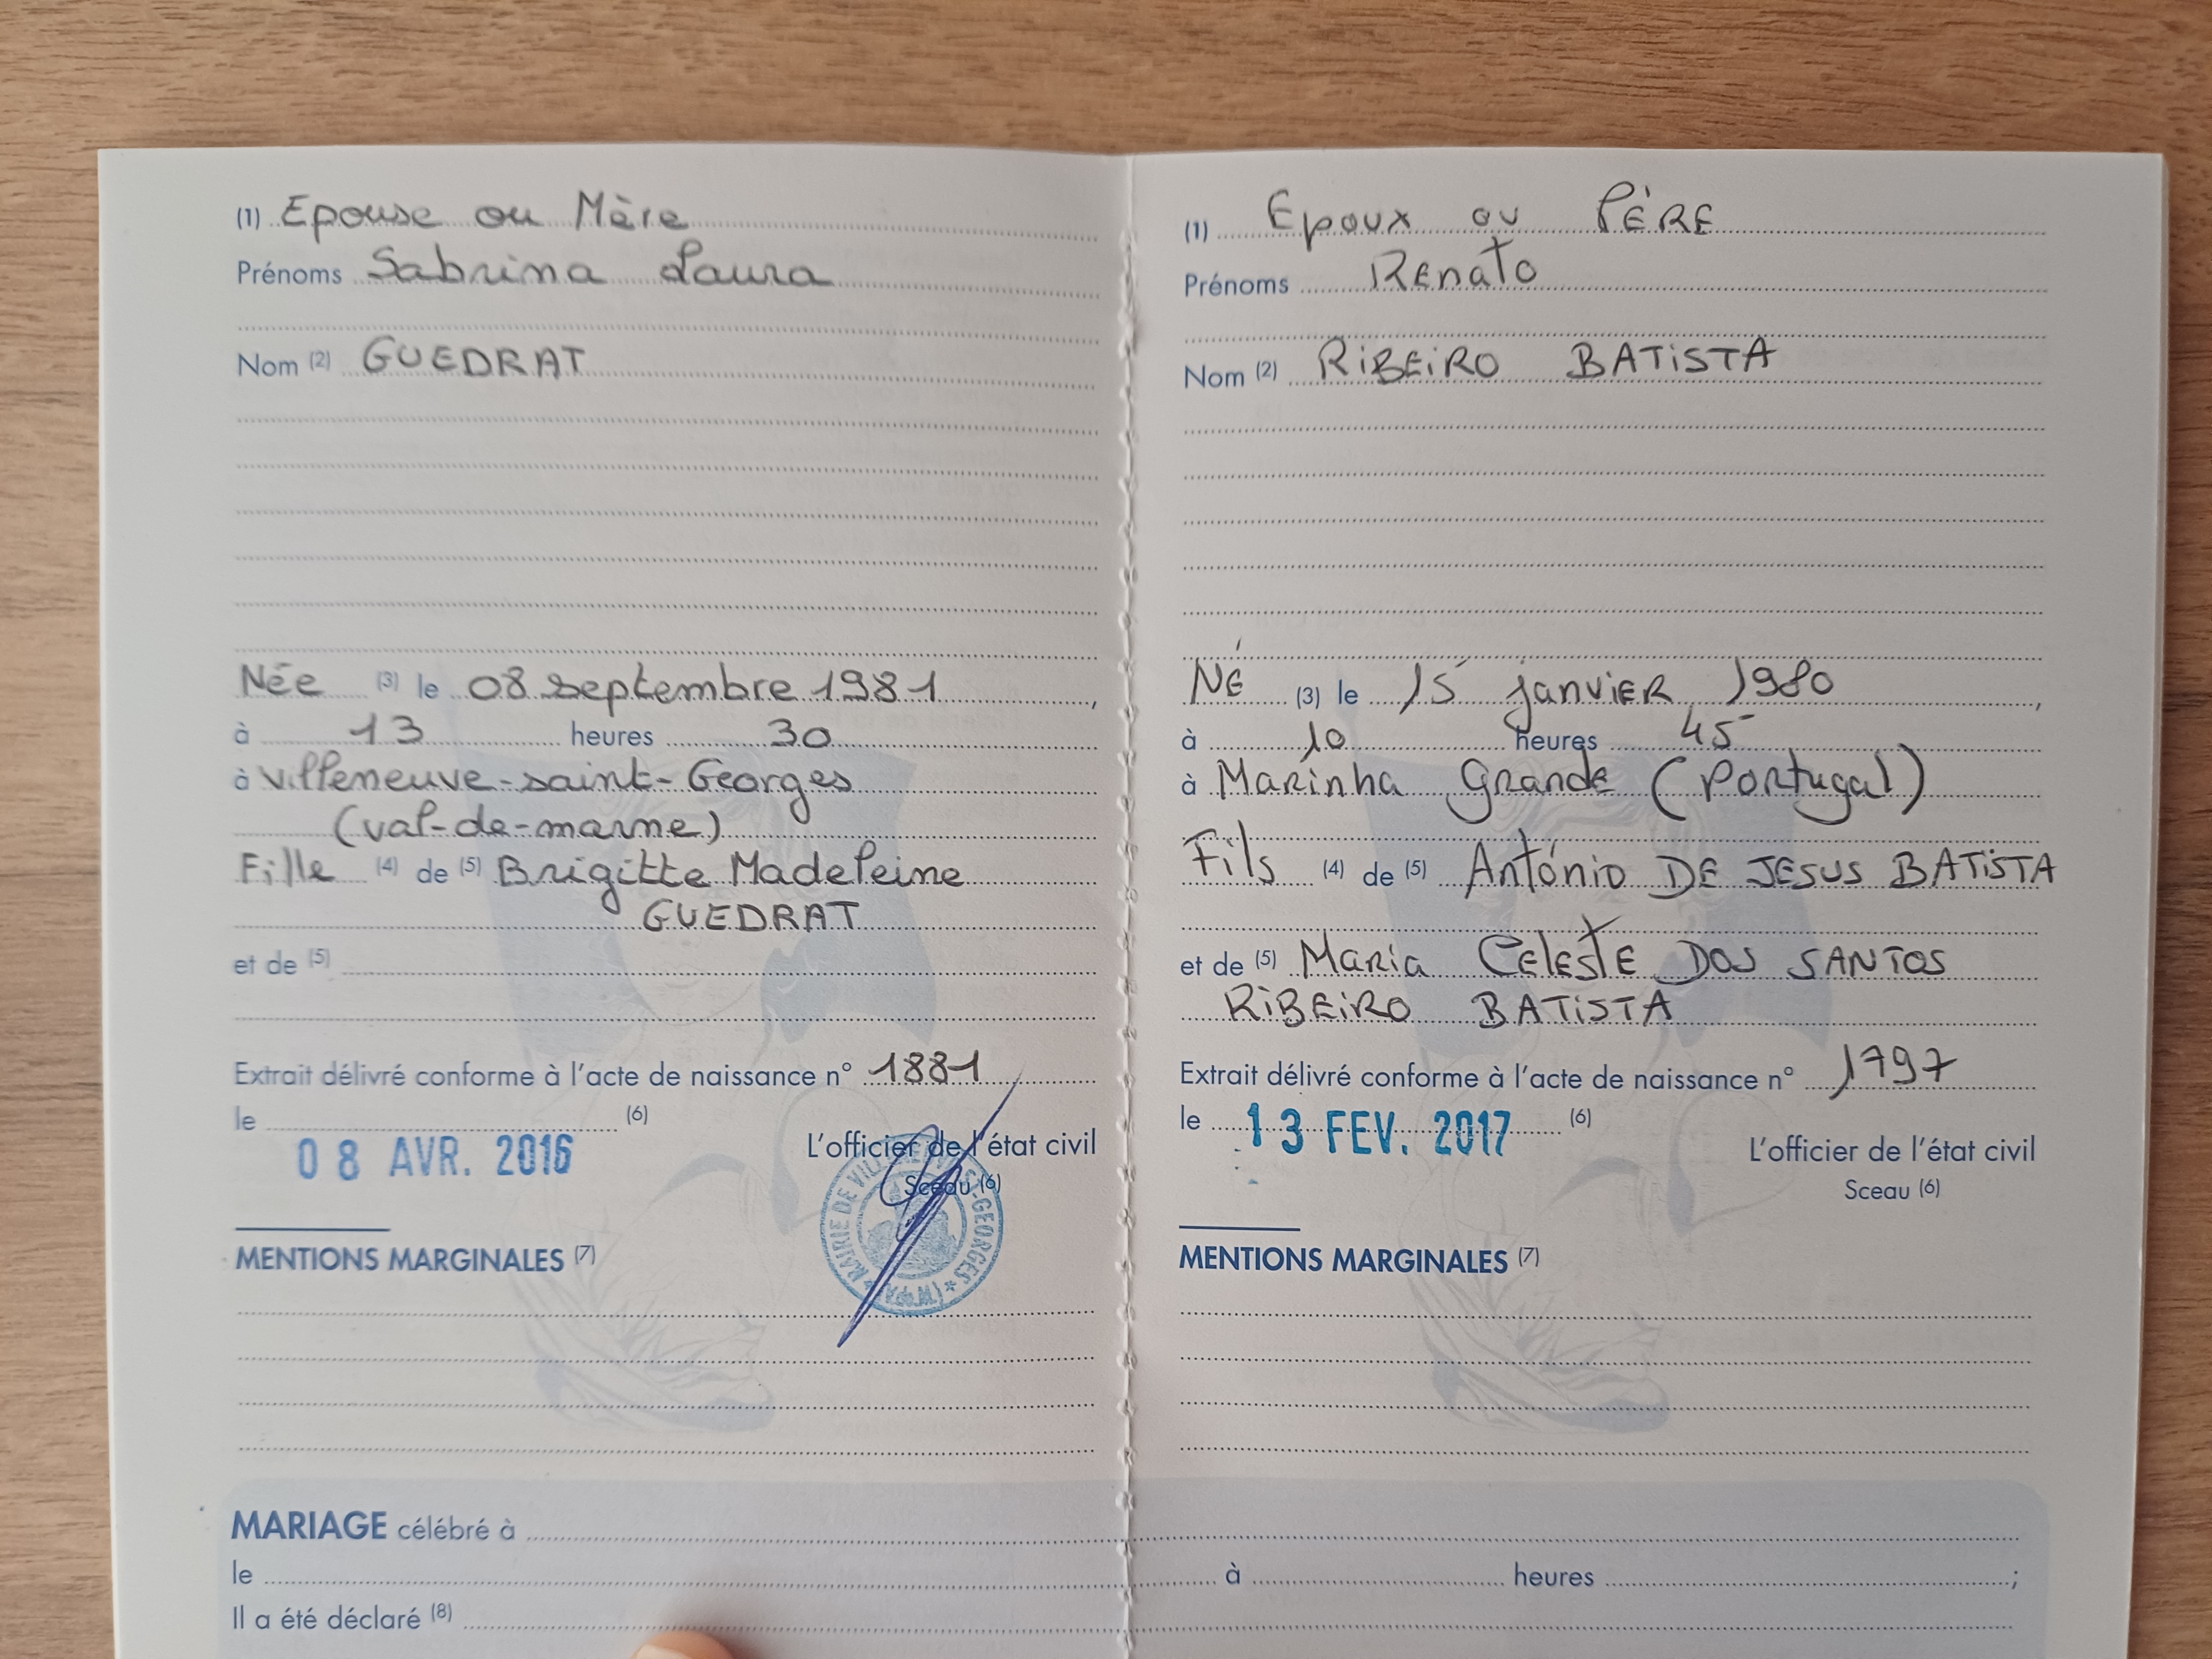 (1) Epouse ou Mère
Prénoms Sabrina Laura
Nom (2) GUEDRAT
Née (3) le 08 septembre 1981,
à 13 heures 30
à Villeneuve-saint-Georges
(val-de-marne)
Fille (4) de (5) Brigitte Madeleine
GUEDRAT
et de (5)
Extrait délivré conforme à l'acte de naissance n° 1881
le (6)
08 AVR. 2016
L'officier de l'état civil
Sceau (6)
MAIRIE DE VILLENEUVE-ST-GEORGES
MENTIONS MARGINALES (7)
(1) Epoux ou PÈRE
Prénoms Renato
Nom (2) RIBEIRO BATISTA
NÉ (3) le 15 janvier 1980,
à 10 heures 45
à Marinha Grande (Portugal)
Fils (4) de (5) António DE JESUS BATISTA
et de (5) Maria CELESTE DOS SANTOS
RIBEIRO BATISTA
Extrait délivré conforme à l'acte de naissance n° 1797
le 13 FEV. 2017 (6)
L'officier de l'état civil
Sceau (6)
MENTIONS MARGINALES (7)
MARIAGE célébré à
le à heures ;
Il a été déclaré (8)